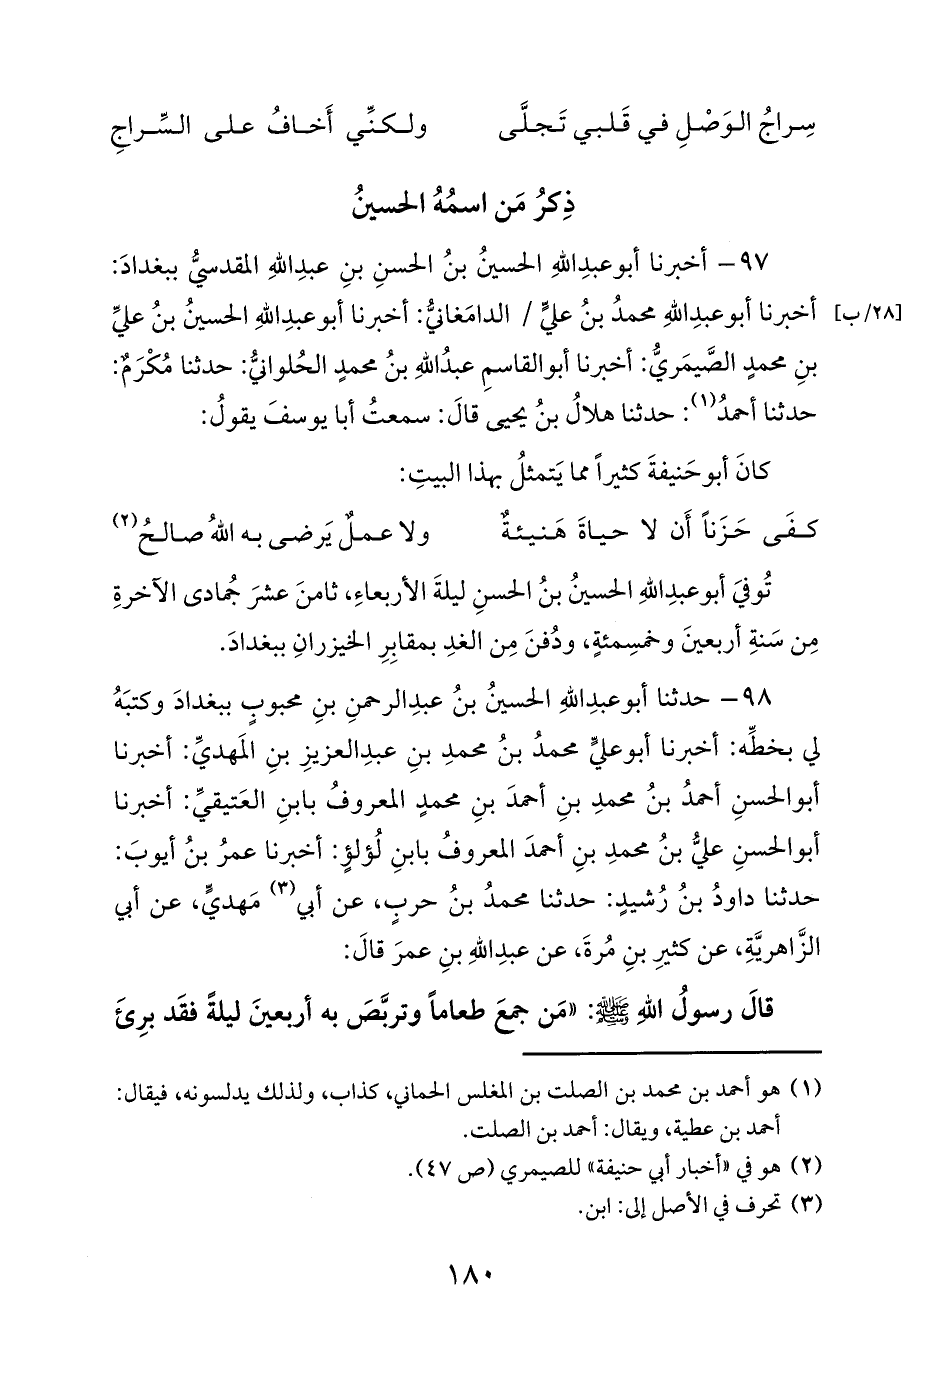 سِراجُ الوَصْلِ في قَلبي تَجلَّى ولكنِّي أَخافُ على السِّراجِ
ذِكرُ مَن اسمُهُ الحسينُ
٩٧ - أخبرنا أبوعبدِاللهِ الحسينُ بنُ الحسنِ بنِ عبدِاللهِ المقدسيُّ ببغدادَ:
[٢٨/ب] أخبرنا أبوعبدِاللهِ محمدُ بنُ عليٍّ / الدامَغانيُّ: أخبرنا أبوعبدِاللهِ الحسينُ بنُ عليِّ
بنِ محمدٍ الصَّيمَريُّ: أخبرنا أبوالقاسمِ عبدُاللهِ بنُ محمدٍ الحُلوانيُّ: حدثنا مُكْرَمٌ:
حدثنا أحمدُ(١): حدثنا هلالُ بنُ يحيى قالَ: سمعتُ أبا يوسفَ يقولُ:
كانَ أبوحَنيفةَ كثيراً مما يَتمثلُ بهذا البيتِ:
كفَى حَزَناً أَن لا حياةَ هَنيئةٌ ولا عملٌ يَرضى به اللهُ صالحُ(٢)
تُوفيَ أبوعبدِاللهِ الحسينُ بنُ الحسنِ ليلةَ الأربعاءِ، ثامنَ عشرَ جُمادى الآخرةِ
مِن سَنةِ أربعينَ وخمسِمئةٍ، ودُفنَ مِن الغدِ بمقابِرِ الخيزرانِ ببغدادَ.
٩٨ - حدثنا أبوعبدِاللهِ الحسينُ بنُ عبدِالرحمنِ بنِ محبوبٍ ببغدادَ وكتبَهُ
لي بخطِّه: أخبرنا أبوعليٍّ محمدُ بنُ محمدِ بنِ عبدِالعزيزِ بنِ المَهديِّ: أخبرنا
أبوالحسنِ أحمدُ بنُ محمدِ بنِ أحمدَ بنِ محمدٍ المعروفُ بابنِ العَتيقيِّ: أخبرنا
أبوالحسنِ عليُّ بنُ محمدِ بنِ أحمدَ المعروفُ بابنِ لُؤلؤٍ: أخبرنا عمرُ بنُ أيوبَ:
حدثنا داودُ بنُ رُشيدٍ: حدثنا محمدُ بنُ حربٍ، عن أبي(٣) مَهديٍّ، عن أبي
الزَّاهريَّةِ، عن كثيرِ بنِ مُرةَ، عن عبدِاللهِ بنِ عمرَ قالَ:
قالَ رسولُ اللهِ ﷺ: «مَن جمعَ طعاماً وتربَّصَ به أربعينَ ليلةً فقَد برِئَ
(١) هو أحمد بن محمد بن الصلت بن المغلس الحماني، كذاب، ولذلك يدلسونه، فيقال:
أحمد بن عطية، ويقال: أحمد بن الصلت.
(٢) هو في «أخبار أبي حنيفة» للصيمري (ص ٤٧).
(٣) تحرف في الأصل إلى: ابن.
١٨٠